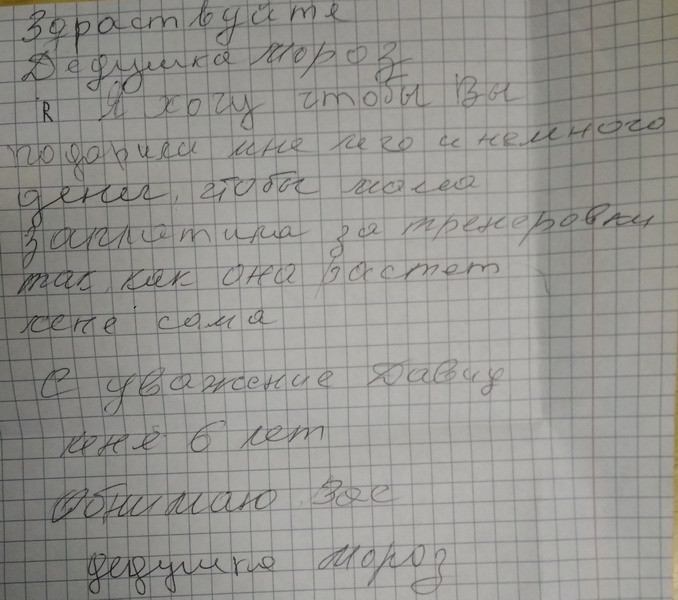 Здраствуйте
Дедушка мороз
Я Я хочу чтобы Вы
подарили мне лего и немного
денег, чтобы мама
заплатила за тренеровки
так как она растет
меня сама
С уважение Давид
мне 6 лет
Обнимаю Вас
дедушка мороз